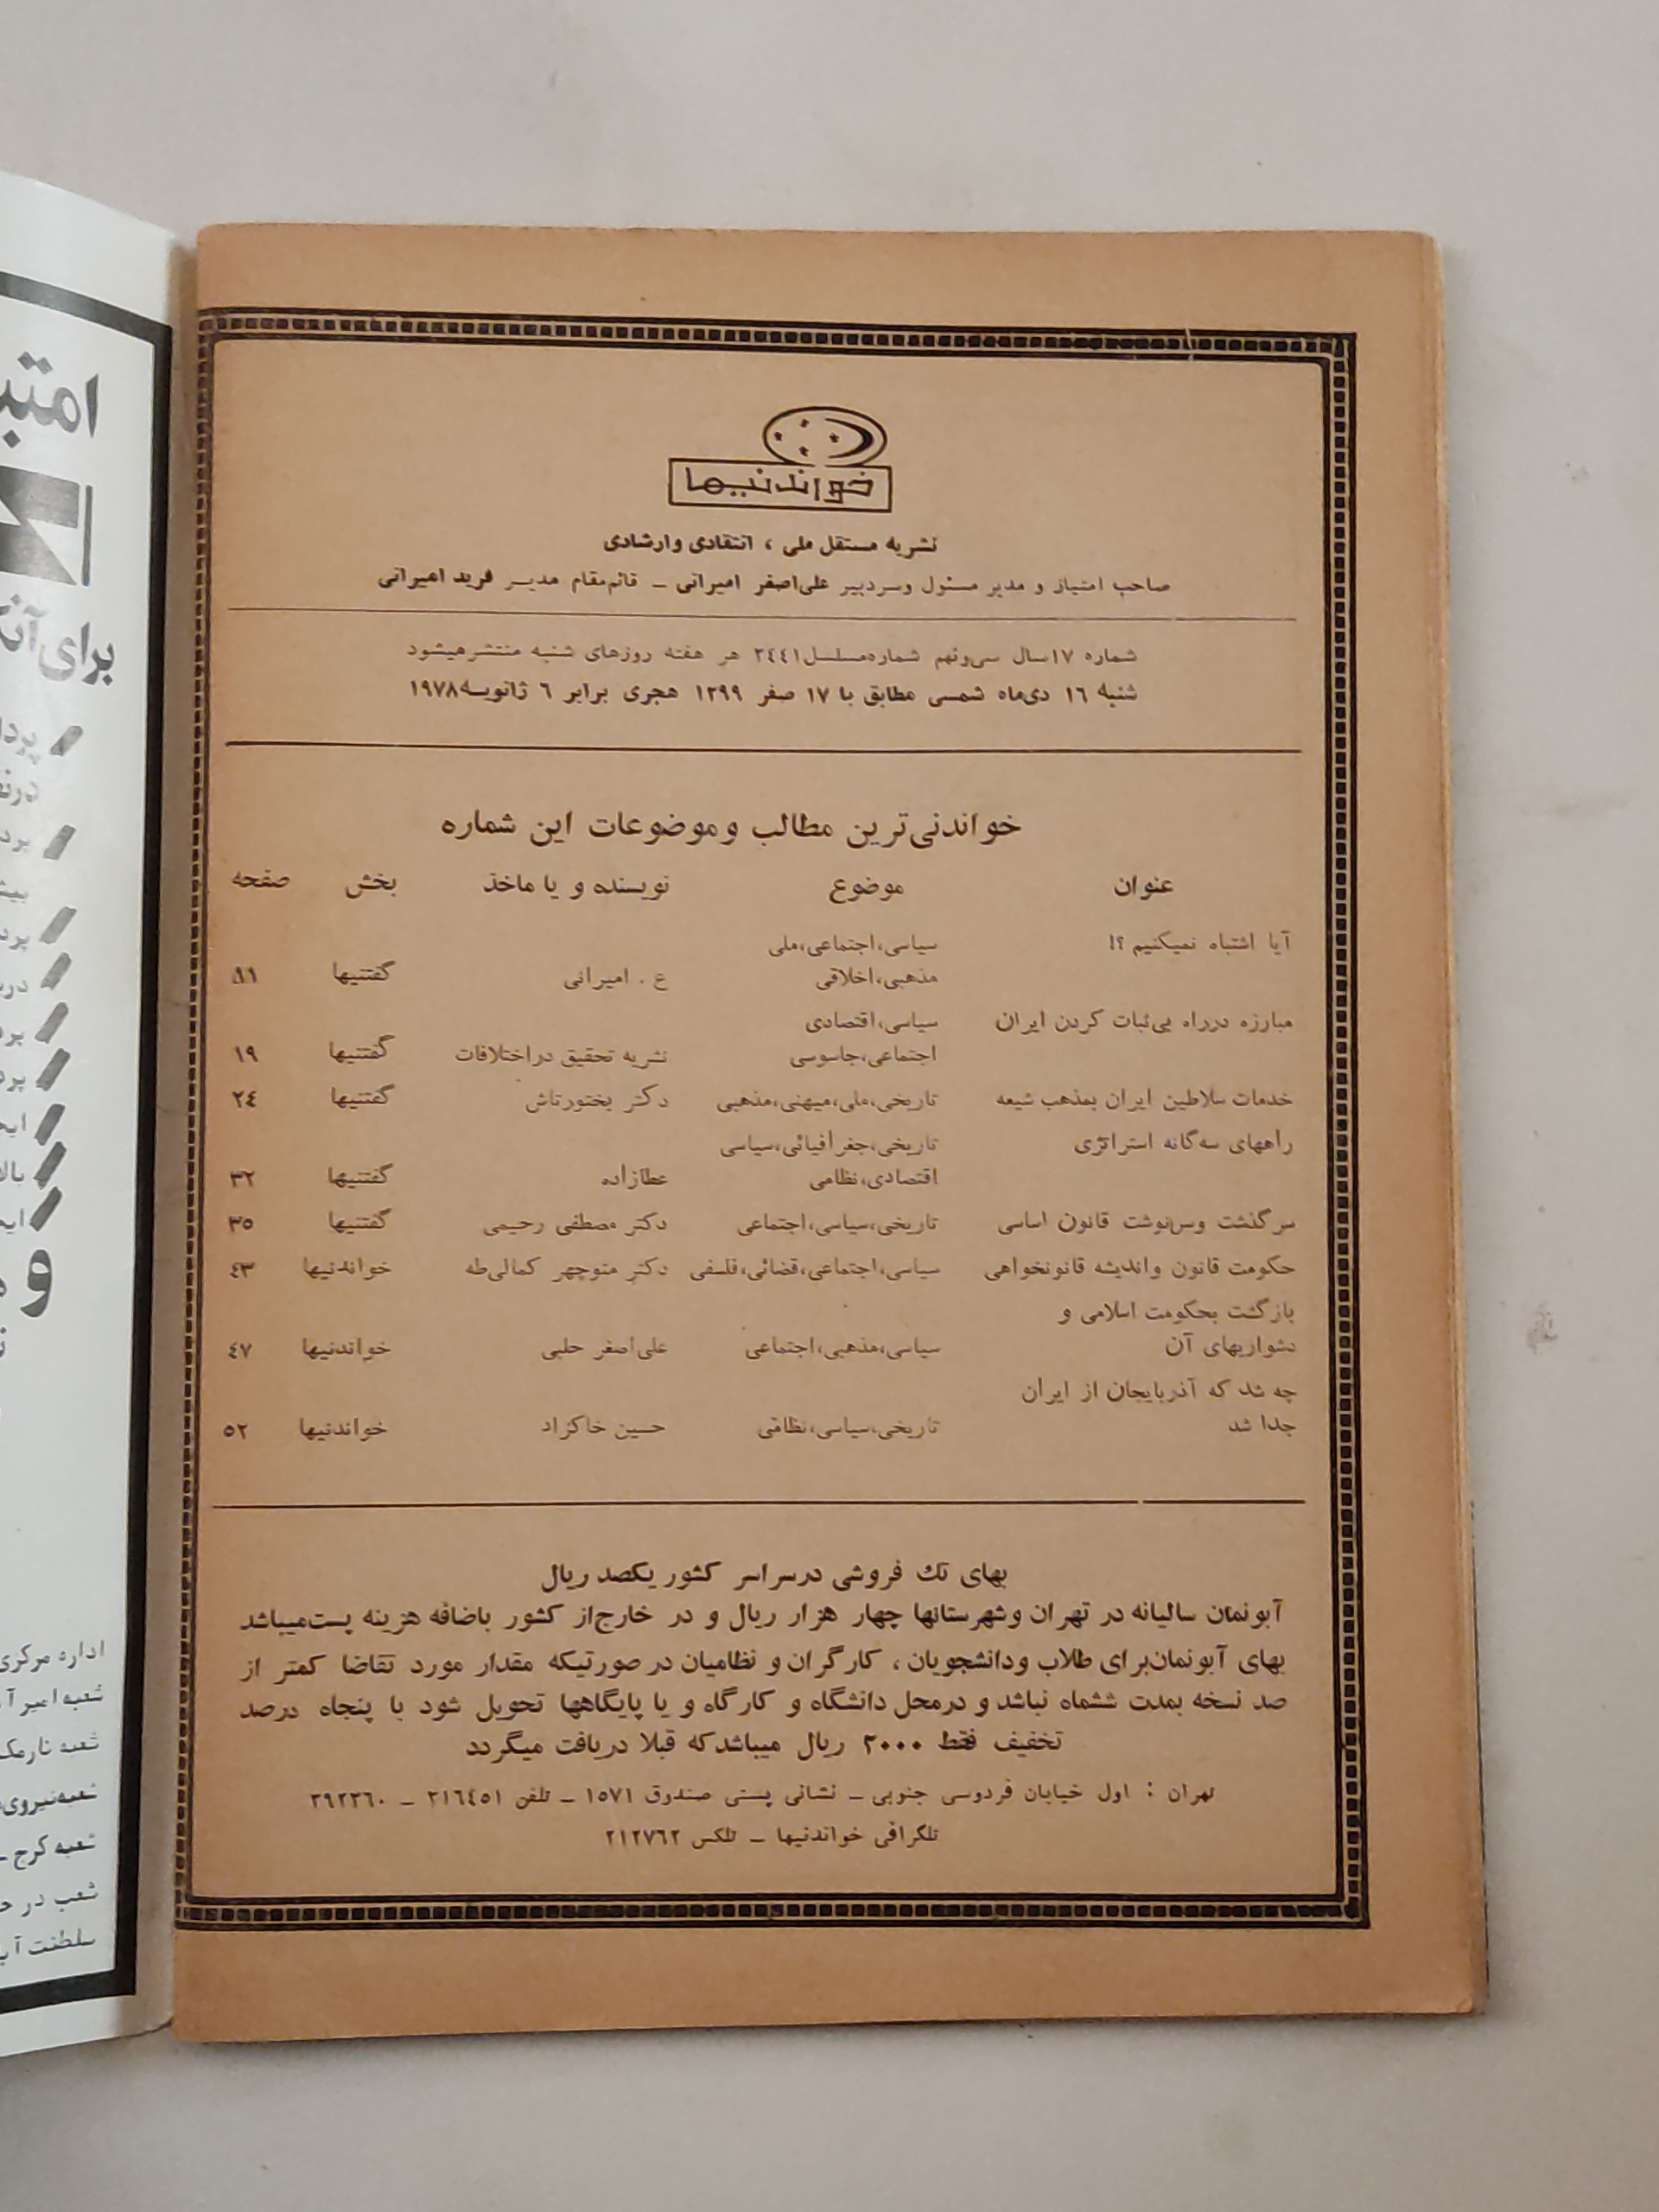 خواندنیها
نشریه مستقل ملی ، انتقادی وارشادی
صاحب امتیاز و مدیر مسئول وسردبیر علی‌اصغر امیرانی ــ قائم‌مقام مدیر فرید امیرانی
شماره ۱۷سال سی‌ونهم شماره‌مسلسل۲٤٤۱ هر هفته روزهای شنبه منتشرمیشود
شنبه ۱٦ دی‌ماه شمسی مطابق با ۱۷ صفر ۱۲۹۹ هجری برابر ٦ ژانویه۱۹۷۸
خواندنی‌ترین مطالب وموضوعات این شماره
عنوان موضوع نویسنده و یا ماخذ بخش صفحه
آیا اشتباه نمیکنیم ؟! سیاسی،اجتماعی،ملی
مذهبی،اخلاقی ع . امیرانی گفتنیها
مبارزه درراه بی‌ثبات کردن ایران سیاسی،اقتصادی
اجتماعی،جاسوسی نشریه تحقیق دراختلافات گفتنیها ۱۹
خدمات سلاطین ایران بمذهب شیعه تاریخی،ملی،میهنی،مذهبی دکتر بختورتاش گفتنیها ۲٤
راههای سه‌گانه استراتژی تاریخی،جغرافیائی،سیاسی
اقتصادی،نظامی عطازاده گفتنیها ۳۲
سرگذشت وسرنوشت قانون اساسی تاریخی،سیاسی،اجتماعی دکتر مصطفی رحیمی گفتنیها ۳۵
حکومت قانون واندیشه قانونخواهی سیاسی،اجتماعی،قضائی،فلسفی دکتر منوچهر کمالی‌طه خواندنیها ٤۳
بازگشت بحکومت اسلامی و
دشواریهای آن سیاسی،مذهبی،اجتماعی علی‌اصغر حلبی خواندنیها ٤۷
چه شد که آذربایجان از ایران
جدا شد تاریخی،سیاسی،نظامی حسین خاکزاد خواندنیها ۵۲
بهای تك فروشی درسراسر کشور یکصد ریال
آبونمان سالیانه در تهران وشهرستانها چهار هزار ریال و در خارج‌از کشور باضافه هزینه پست‌میباشد
بهای آبونمان‌برای طلاب ودانشجویان ، کارگران و نظامیان در صورتیکه مقدار مورد تقاضا کمتر از
صد نسخه بمدت ششماه نباشد و درمحل دانشگاه و کارگاه و یا پایگاهها تحویل شود با پنجاه درصد
تخفیف فقط ۲۰۰۰ ریال میباشدکه قبلا دریافت میگردد
تهران : اول خیابان فردوسی جنوبی ــ نشانی پستی صندوق ۱۵۷۱ ــ تلفن ۳۱٦٤۵۱ ــ ۳۹۲۳٦۰
تلگرافی خواندنیها ــ تلکس ۲۱۲۷٦۲
برای
اداره مرکزی
شعبه امیر
شعبه نارمک
شعبه‌نیروی
شعبه کرج ــ
شعب در
سلطنت